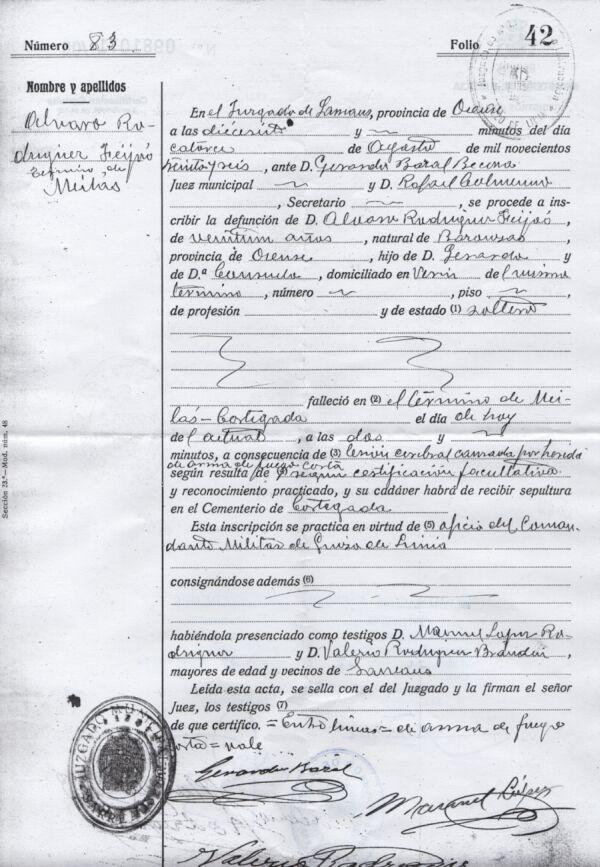 Número 83
Folio 42
Nombre y apellidos
Alvaro Ro-
driguez Feijoó
termino de
Meilas
En el Juzgado de Sarreaus, provincia de Orense
a las diecisiete y minutos del día
catorce de Agosto de mil novecientos
treinta y seis, ante D. Gerardo Baral
Juez municipal y D. Rafael Colmenero
, Secretario , se procede a ins-
cribir la defunción de D. Alvaro Rodriguez Feijoó,
de veintiun años, natural de
provincia de Orense, hijo de D. Gerardo y
de D.ª Consuelo, domiciliado en Verin del mismo
termino, número , piso ,
de profesión y de estado (1) soltero
falleció en (2) el término de Mei-
las-Cortegada el día de hoy
del actual, a las dos y
minutos, a consecuencia de (3) lesión cerebral causada por herida
de arma de fuego corta
según resulta de (4) según certificación facultativa
y reconocimiento practicado, y su cadáver habrá de recibir sepultura
en el Cementerio de Cortegada
Esta inscripción se practica en virtud de (5) oficio del Coman-
dante Militar de Ginzo de Limia
consignándose además (6)
habiéndola presenciado como testigos D. Manuel Lopez Ro-
driguez y D. Valerio Rodriguez
mayores de edad y vecinos de Sarreaus
Leída esta acta, se sella con el del Juzgado y la firman el señor
Juez, los testigos (7)
de que certifico. = Entre lineas = de arma de fuego
corta = vale
Gerardo Baral
Manuel López
Valerio Rodriguez
Sección 23.ª-Mod. núm. 48
JUZGADO MUNICIPAL